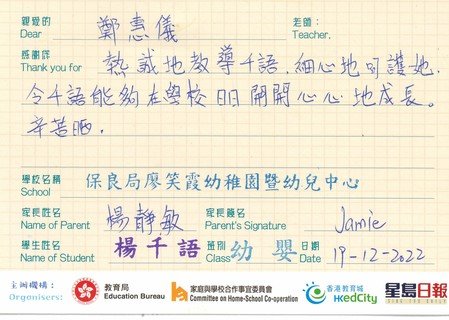 親愛的 鄭惠儀 老師：
Dear Teacher,
感謝你 熱誠地教導千語，細心地呵護她，
Thank you for
令千語能夠在學校日日開開心心地成長。
辛苦晒。
學校名稱 保良局廖笑霞幼稚園暨幼兒中心
School
家長姓名 楊靜敏 家長簽名 Jamie
Name of Parent Parent's Signature
學生姓名 楊千語 班別 幼嬰 日期 19-12-2022
Name of Student Class Date
主辦機構： 教育局 家庭與學校合作事宜委員會 香港教育城 星島日報
Organisers: Education Bureau Committee on Home-School Co-operation HKedCity SING TAO DAILY